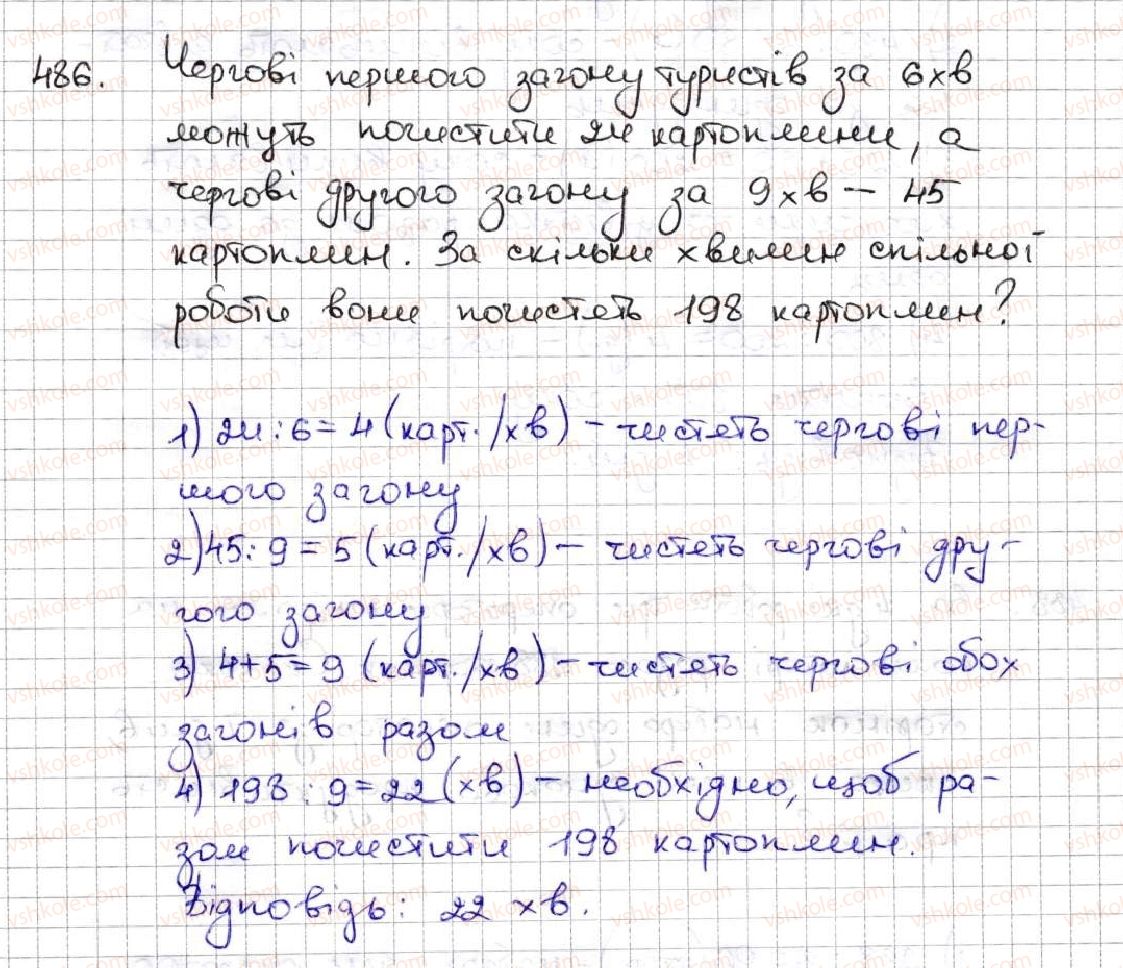 486. Чергові першого загону туристів за 6 хв
можуть почистити 24 картоплини, а
чергові другого загону за 9 хв – 45
картоплин. За скільки хвилин спільної
роботи вони почистять 198 картоплин?
1) 24 : 6 = 4 (карт./хв) – чистять чергові пер-
шого загону
2) 45 : 9 = 5 (карт./хв) – чистять чергові дру-
гого загону
3) 4 + 5 = 9 (карт./хв) – чистять чергові обох
загонів разом
4) 198 : 9 = 22 (хв) – необхідно, щоб ра-
зом почистити 198 картоплин.
Відповідь: 22 хв.